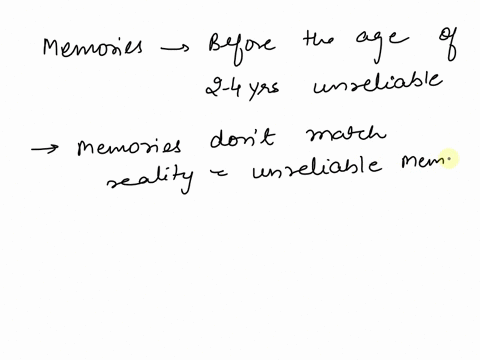 Memories → Before the age of
2-4 yrs unreliable
→ Memories don't match
reality = unreliable mem.